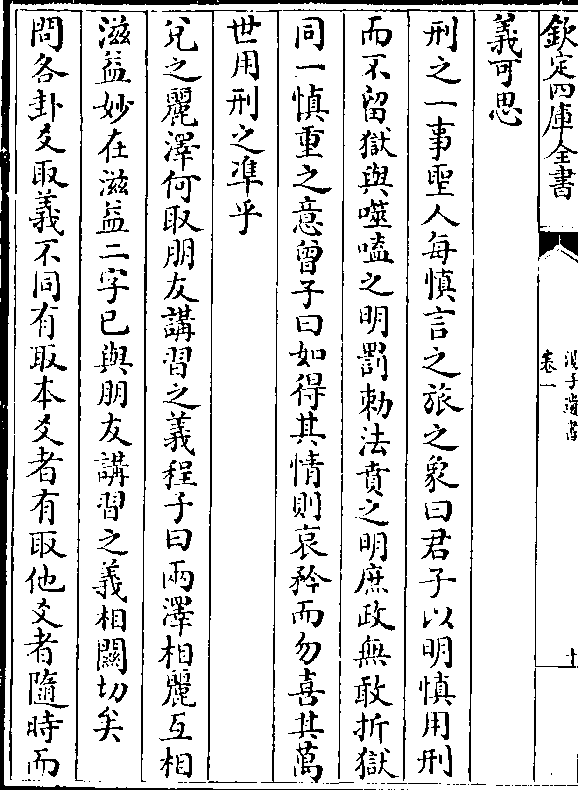 欽定四庫全書
卷一
義可思
刑之一事聖人每慎言之旅之象曰君子以明慎用刑
而不留獄與噬嗑之明罰勅法賁之明庶政無敢折獄
同一慎重之意曾子曰如得其情則哀矜而勿喜其萬
世用刑之準乎
兌之麗澤何取朋友講習之義程子曰兩澤相麗互相
滋益妙在滋益二字已與朋友講習之義相關切矣
問各卦爻取義不同有取本爻者有取他爻者隨時而